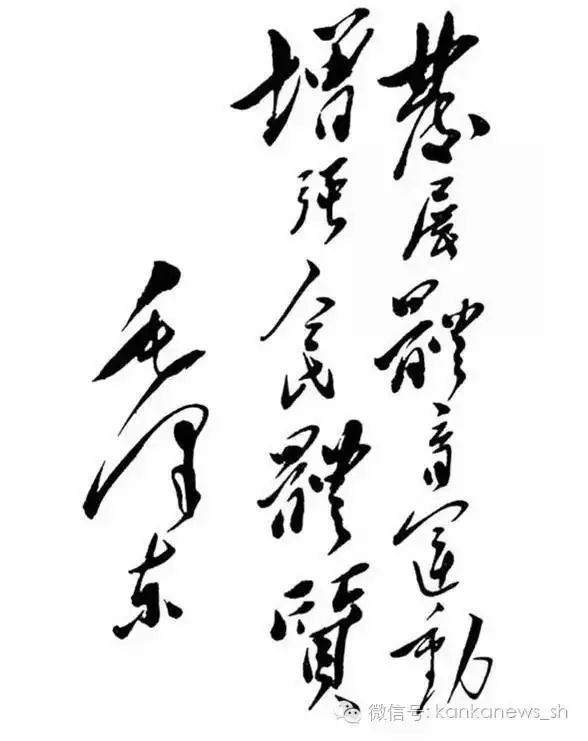 發展體育運動
增强人民體質
毛澤东
微信号: kankanews_sh